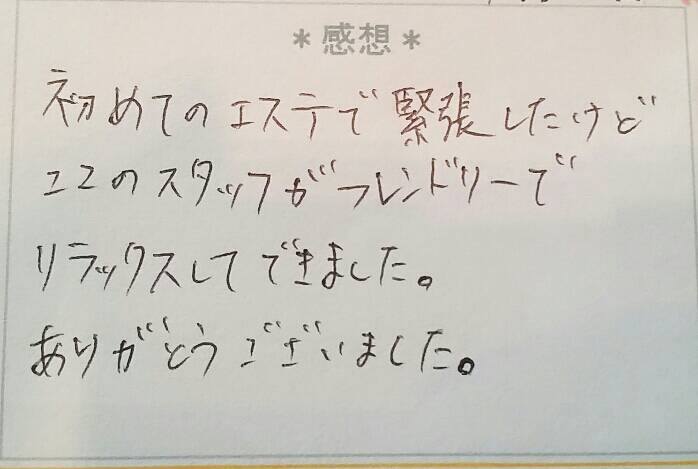 *感想*
初めてのエステで緊張したけど
ココのスタッフがフレンドリーで
リラックスしてできました。
ありがとうございました。